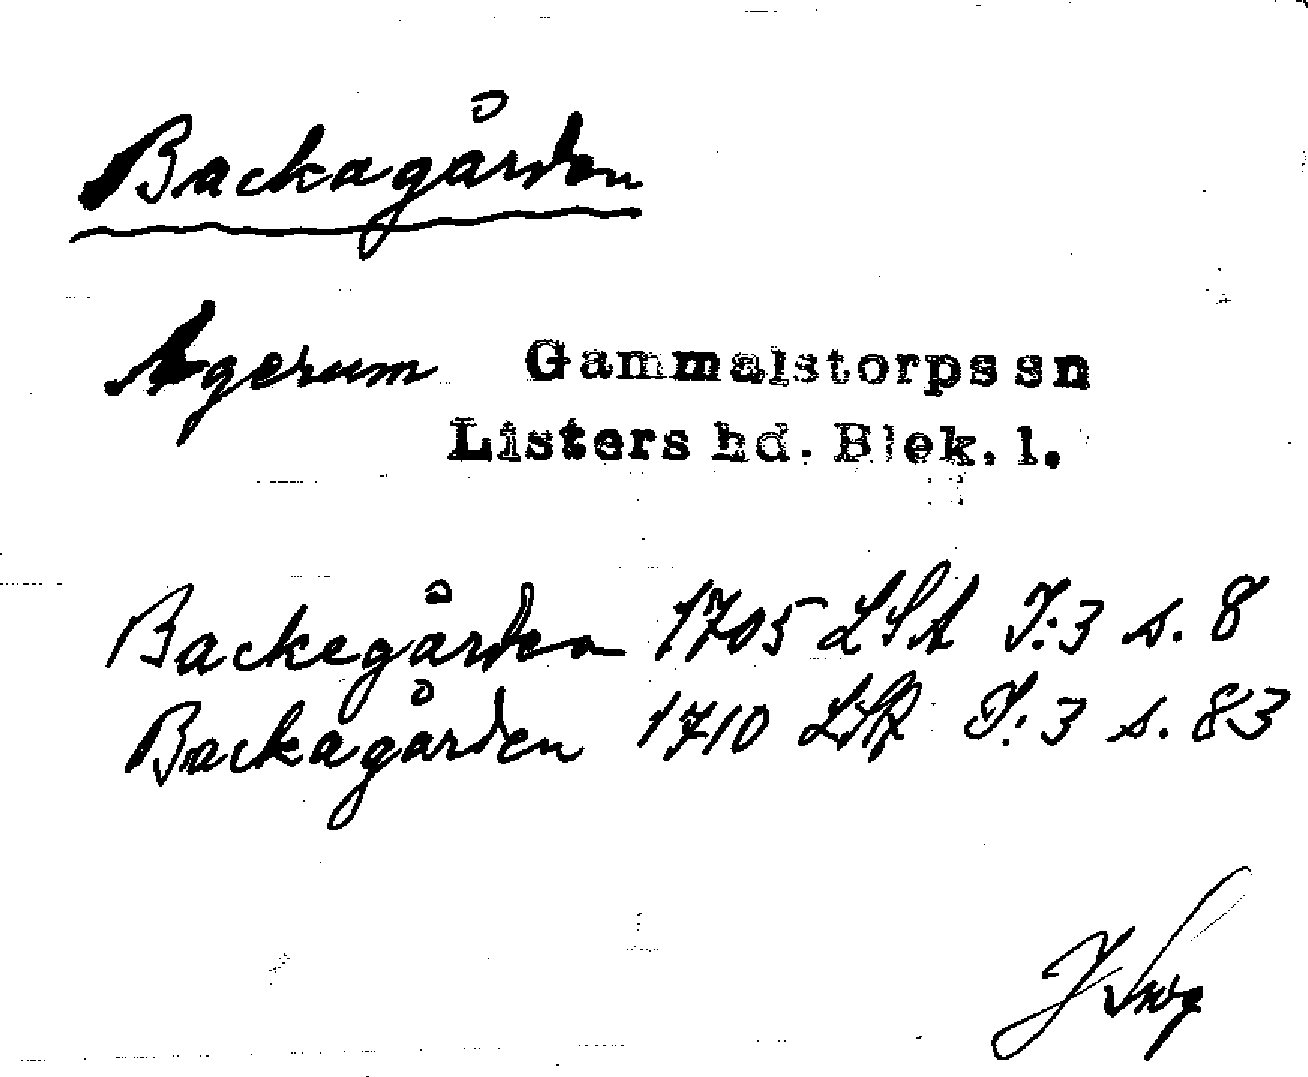 Backagården
Agerum Gammalstorps sn
Listers hd. Blek. l.
Backegården 1705 LSA J:3 s. 8
Backagården 1710 J:3 s. 83